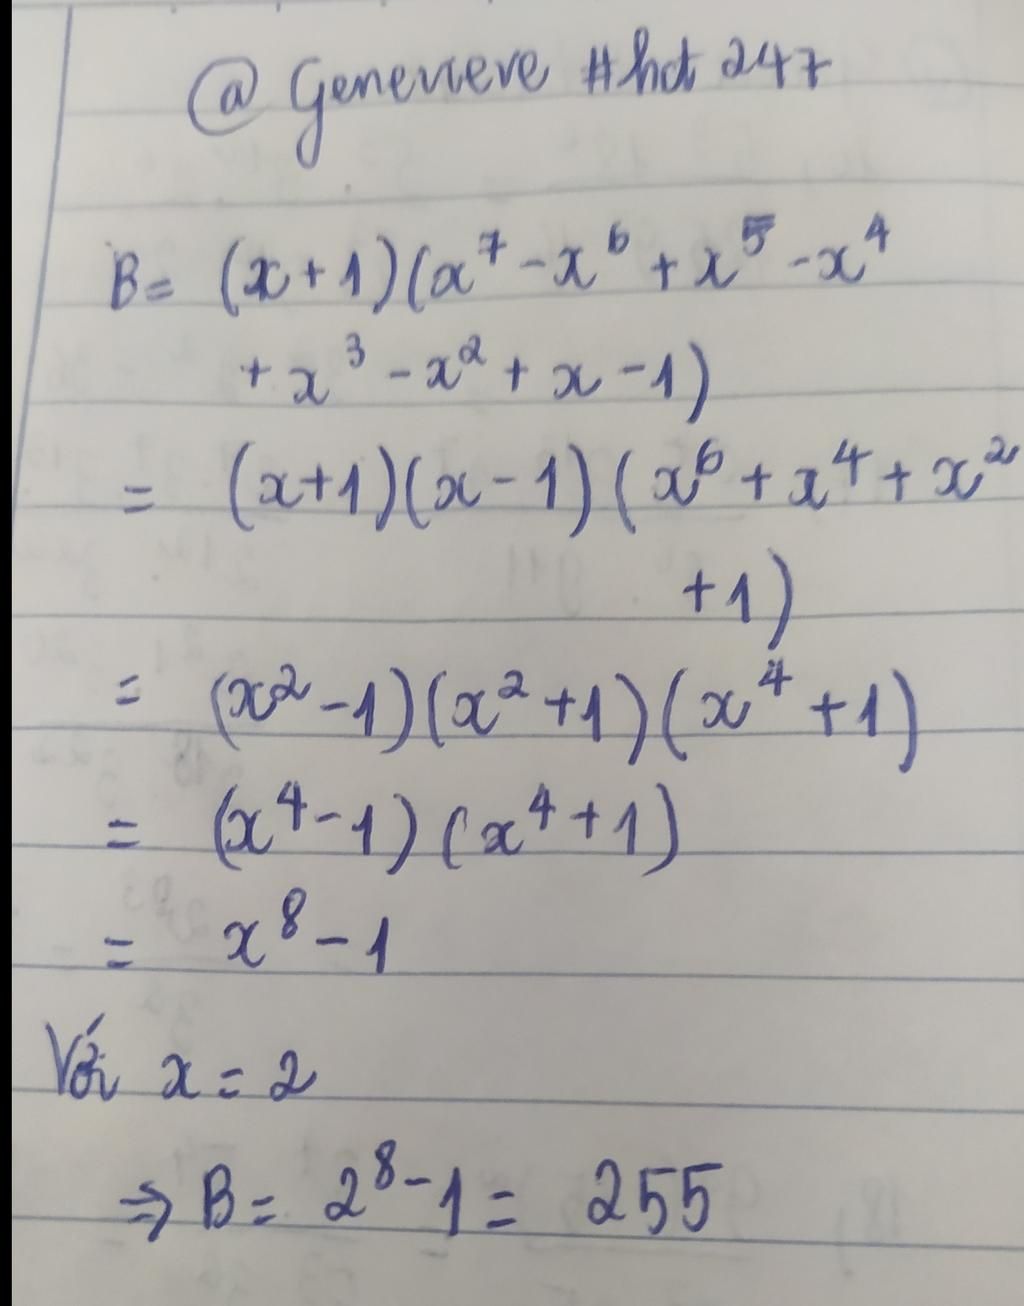 @ Genevieve #hđt 247
B = (x+1)(x⁷ - x⁶ + x⁵ - x⁴
+ x³ - x² + x - 1)
= (x+1)(x-1)(x⁶ + x⁴ + x²
+1)
= (x² - 1)(x² + 1)(x⁴ + 1)
= (x⁴ - 1)(x⁴ + 1)
= x⁸ - 1
Với x = 2
⇒ B = 2⁸ - 1 = 255